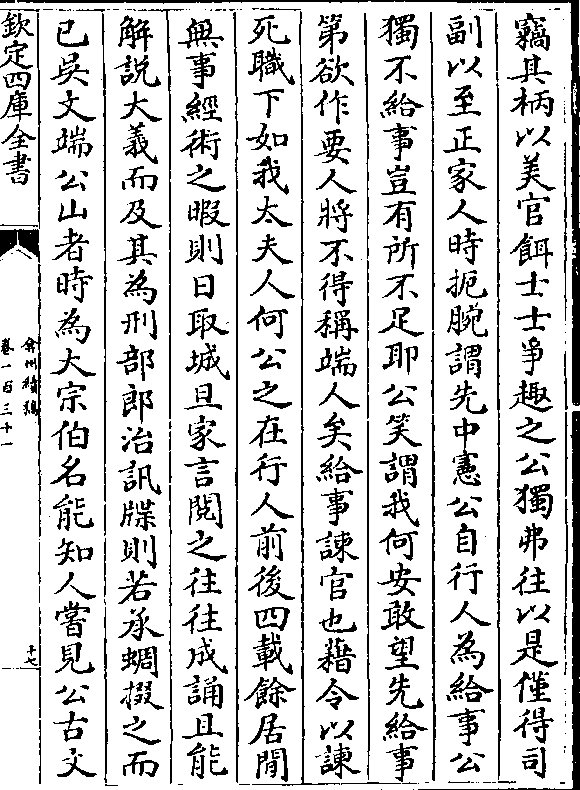 竊其柄以美官餌士士爭趣之公獨弗往以是僅得司
副以至正家人時扼腕謂先中憲公自行人為給事公
獨不給事豈有所不足耶公笑謂我何安敢望先給事
第欲作要人將不得稱端人矣給事諫官也藉令以諫
死職下如我太夫人何公之在行人前後四載餘居閒
無事經術之暇則日取城旦家言閱之往往成誦且能
解說大義而及其為刑部郎治訊牒則若承蜩掇之而
已吳文端公山者時為大宗伯名能知人嘗見公古文
欽定四庫全書
弇州續稿
卷一百三十一
十七